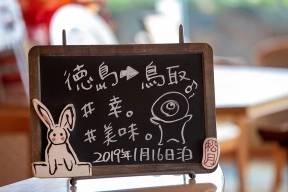 徳島➡鳥取♪
#幸。
#美味。
2019年1月16日泊
松月